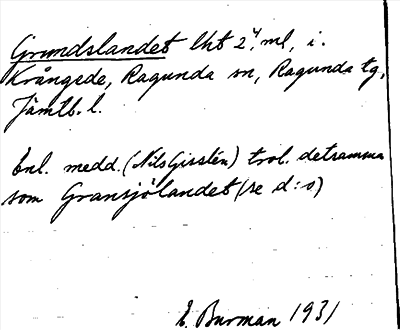 Grundslandet lht 2⁴, ml, i.
Krångede, Ragunda sn, Ragunda tg,
Jämtl. l.
Enl. medd. (Nils Gisslén) trol. detsamma
som Gransjölandet (se d:o)
E. Burman 1931